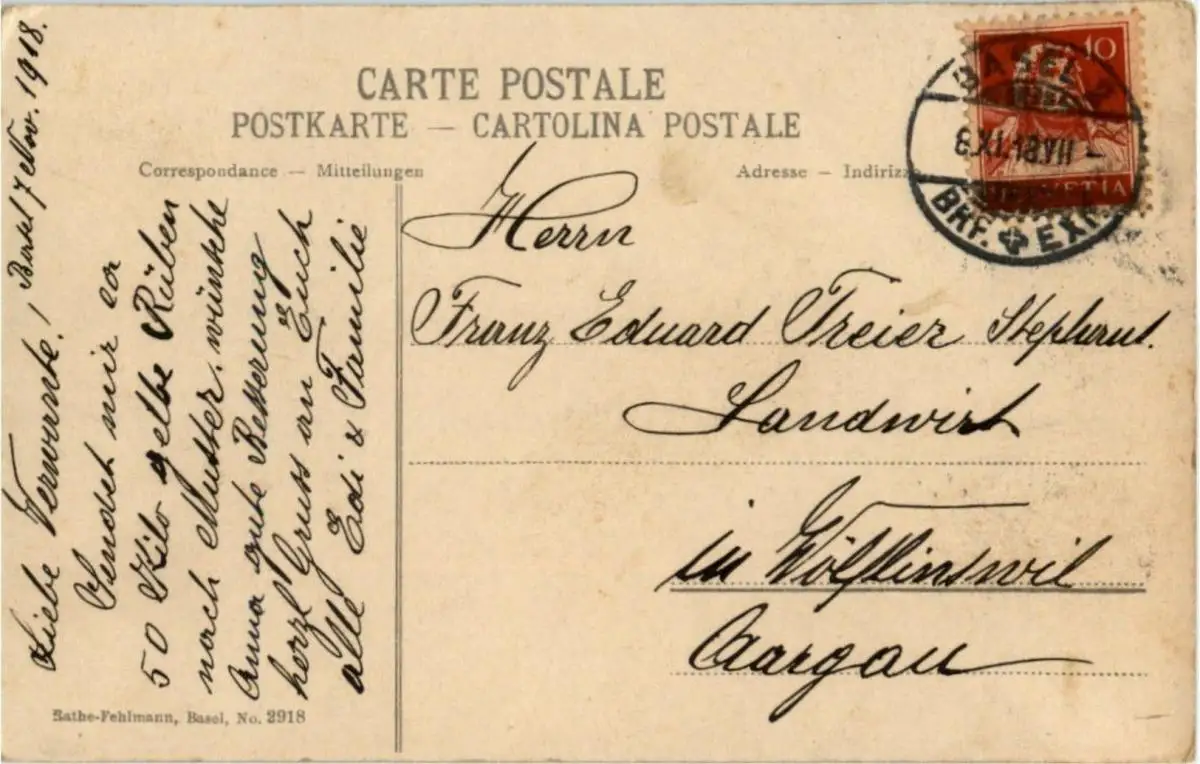 CARTE POSTALE
POSTKARTE — CARTOLINA POSTALE
Correspondance — Mitteilungen
Adresse — Indirizz
10
HELVETIA
BASEL 2
8.XI.18.VII –
BRF. EXP.
Basel 7 Nov. 1918.
Liebe Verwante!
Sendet mir ca
50 Kilo gelbe Rüben
nach Mutter. wünsche
Anna gute Besserung
herzl Gruss an Euch
alle Edi & Familie
Herrn
Franz Eduard Treier
Landwirt
in Wölflinswil
Aargau
Rathe-Fehlmann, Basel, No. 2918